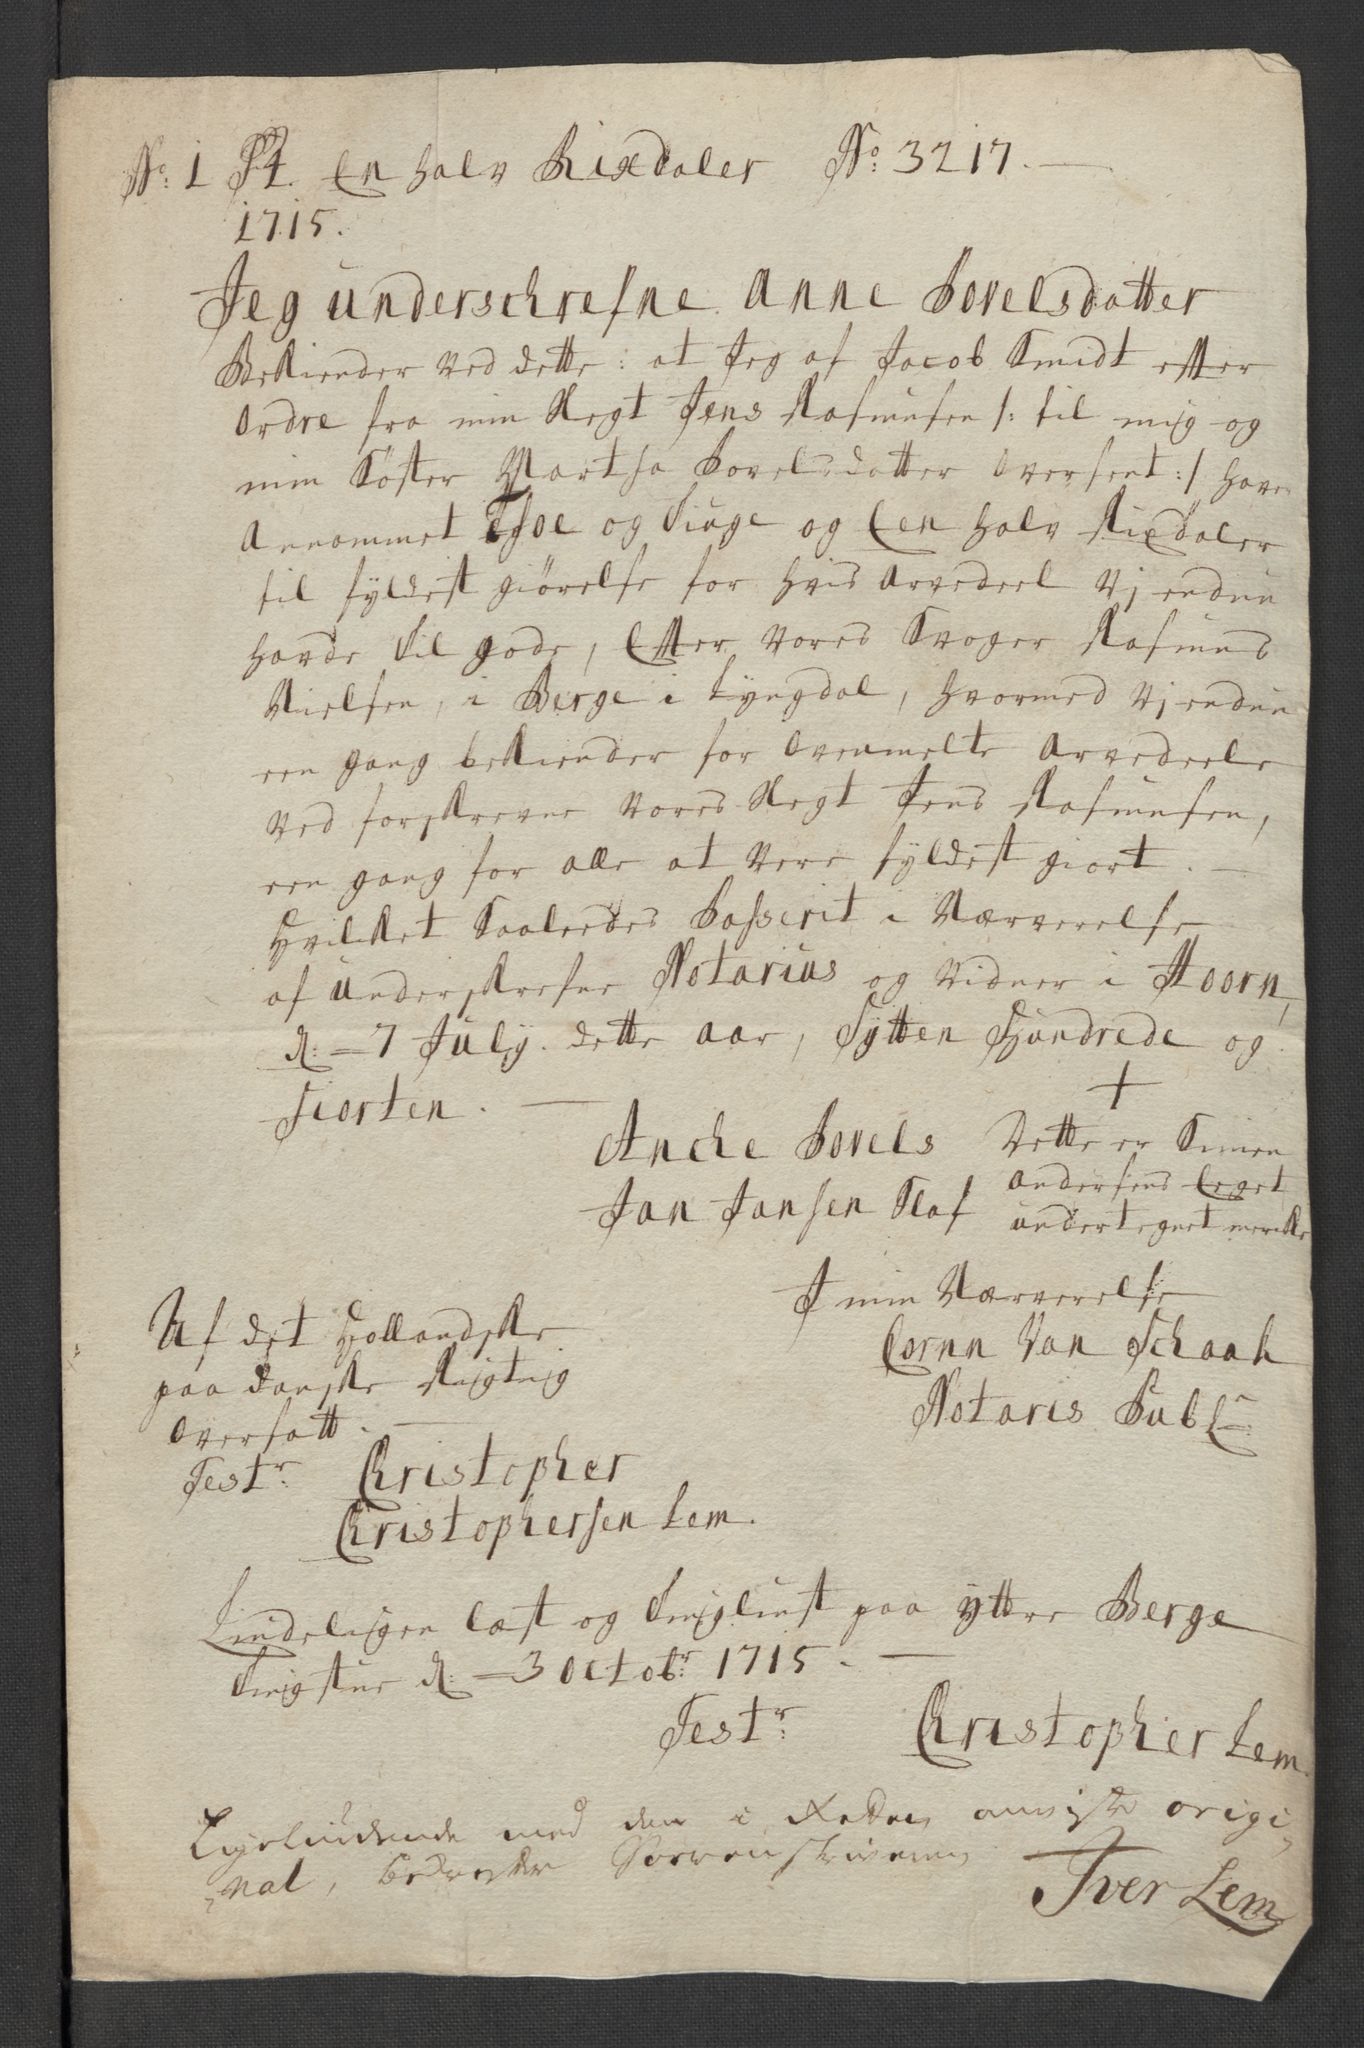 No: 1 St. En halv Rixdaler No: 3217.
1715.
Jeg underschrefne Anne Povelsdatter
Bekiender ved dette: at Jeg af Jacob Smidt efter
Ordre fra min Slegt Jens Rasmusen /: til mig og
min Søster Martha Povelsdatter Oversent :/ haver
Annommet Thoe og Tiuge og Een halv Rixdaler
til fyldest giørelse for hvis Arvedeel Vj endnu
havde til gode, Efter Vores Svoger Rasmus
Nielsen, i Berge i Lyngdal, hvormed Vj endnu
een gang bekiender for Ovenmelte Arvedeele
Ved forskrevne Vores Slegt Jens Rasmusen,
een gang for alle at Vere fyldest giort.
Hvilket Saaledes Passerit i Nærverelse
af Underskrefne Notarius og Vidner i Hoorn,
d: 7 July. dette aar, Sytten Hundrede og
Fiorten.
+
Anche Povels Dette er Simen
Andersens Eeget
Jan Jansen Slaf undertegnet merkke
I min Nærverelse
Cornn Van Schaak
Notaris Publ
Af det Hollandske
paa Danske Rigtig
Oversatt.
Testr: Christopher
Christophersen Lem.
Lindeligen læst og Tinglæst paa yttre Berge
Tingstue d: 3 Octobr: 1715.
Testr: Christopher Lem.
Ligelÿdende med den i Retten anviste origi-
nal, bekrefter Sorrenskriveren
Iver Lem